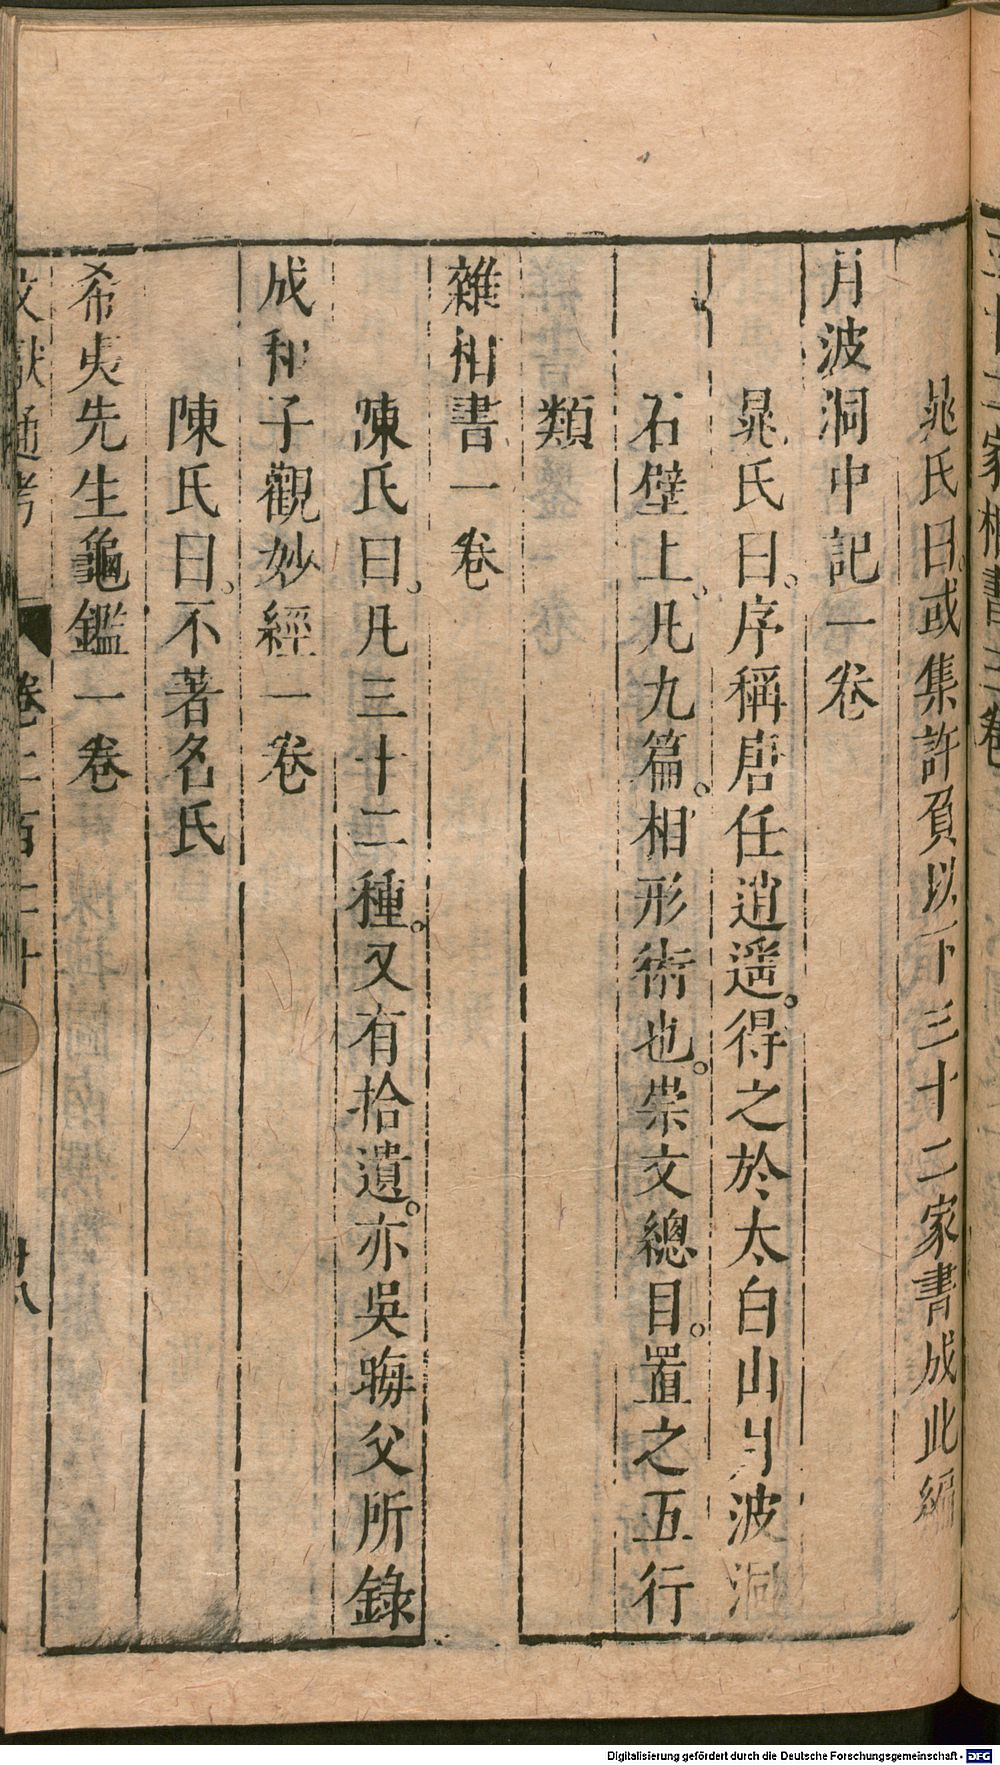 三十二家相書三卷
晁氏曰。或集許負以下三十二家書成此編
月波洞中記一卷
晁氏曰。序稱唐任逍遥。得之於太白山月波洞
石壁上。凡九篇。相形術也。崇文總目。置之五行
類
雜相書一卷
陳氏曰。凡三十二種。又有拾遺。亦吳晦父所錄
成和子觀妙經一卷
陳氏曰。不著名氏
希夷先生龜鑑一卷
文獻通考 卷二百二十 十八
Digitalisierung gefördert durch die Deutsche Forschungsgemeinschaft - DFG